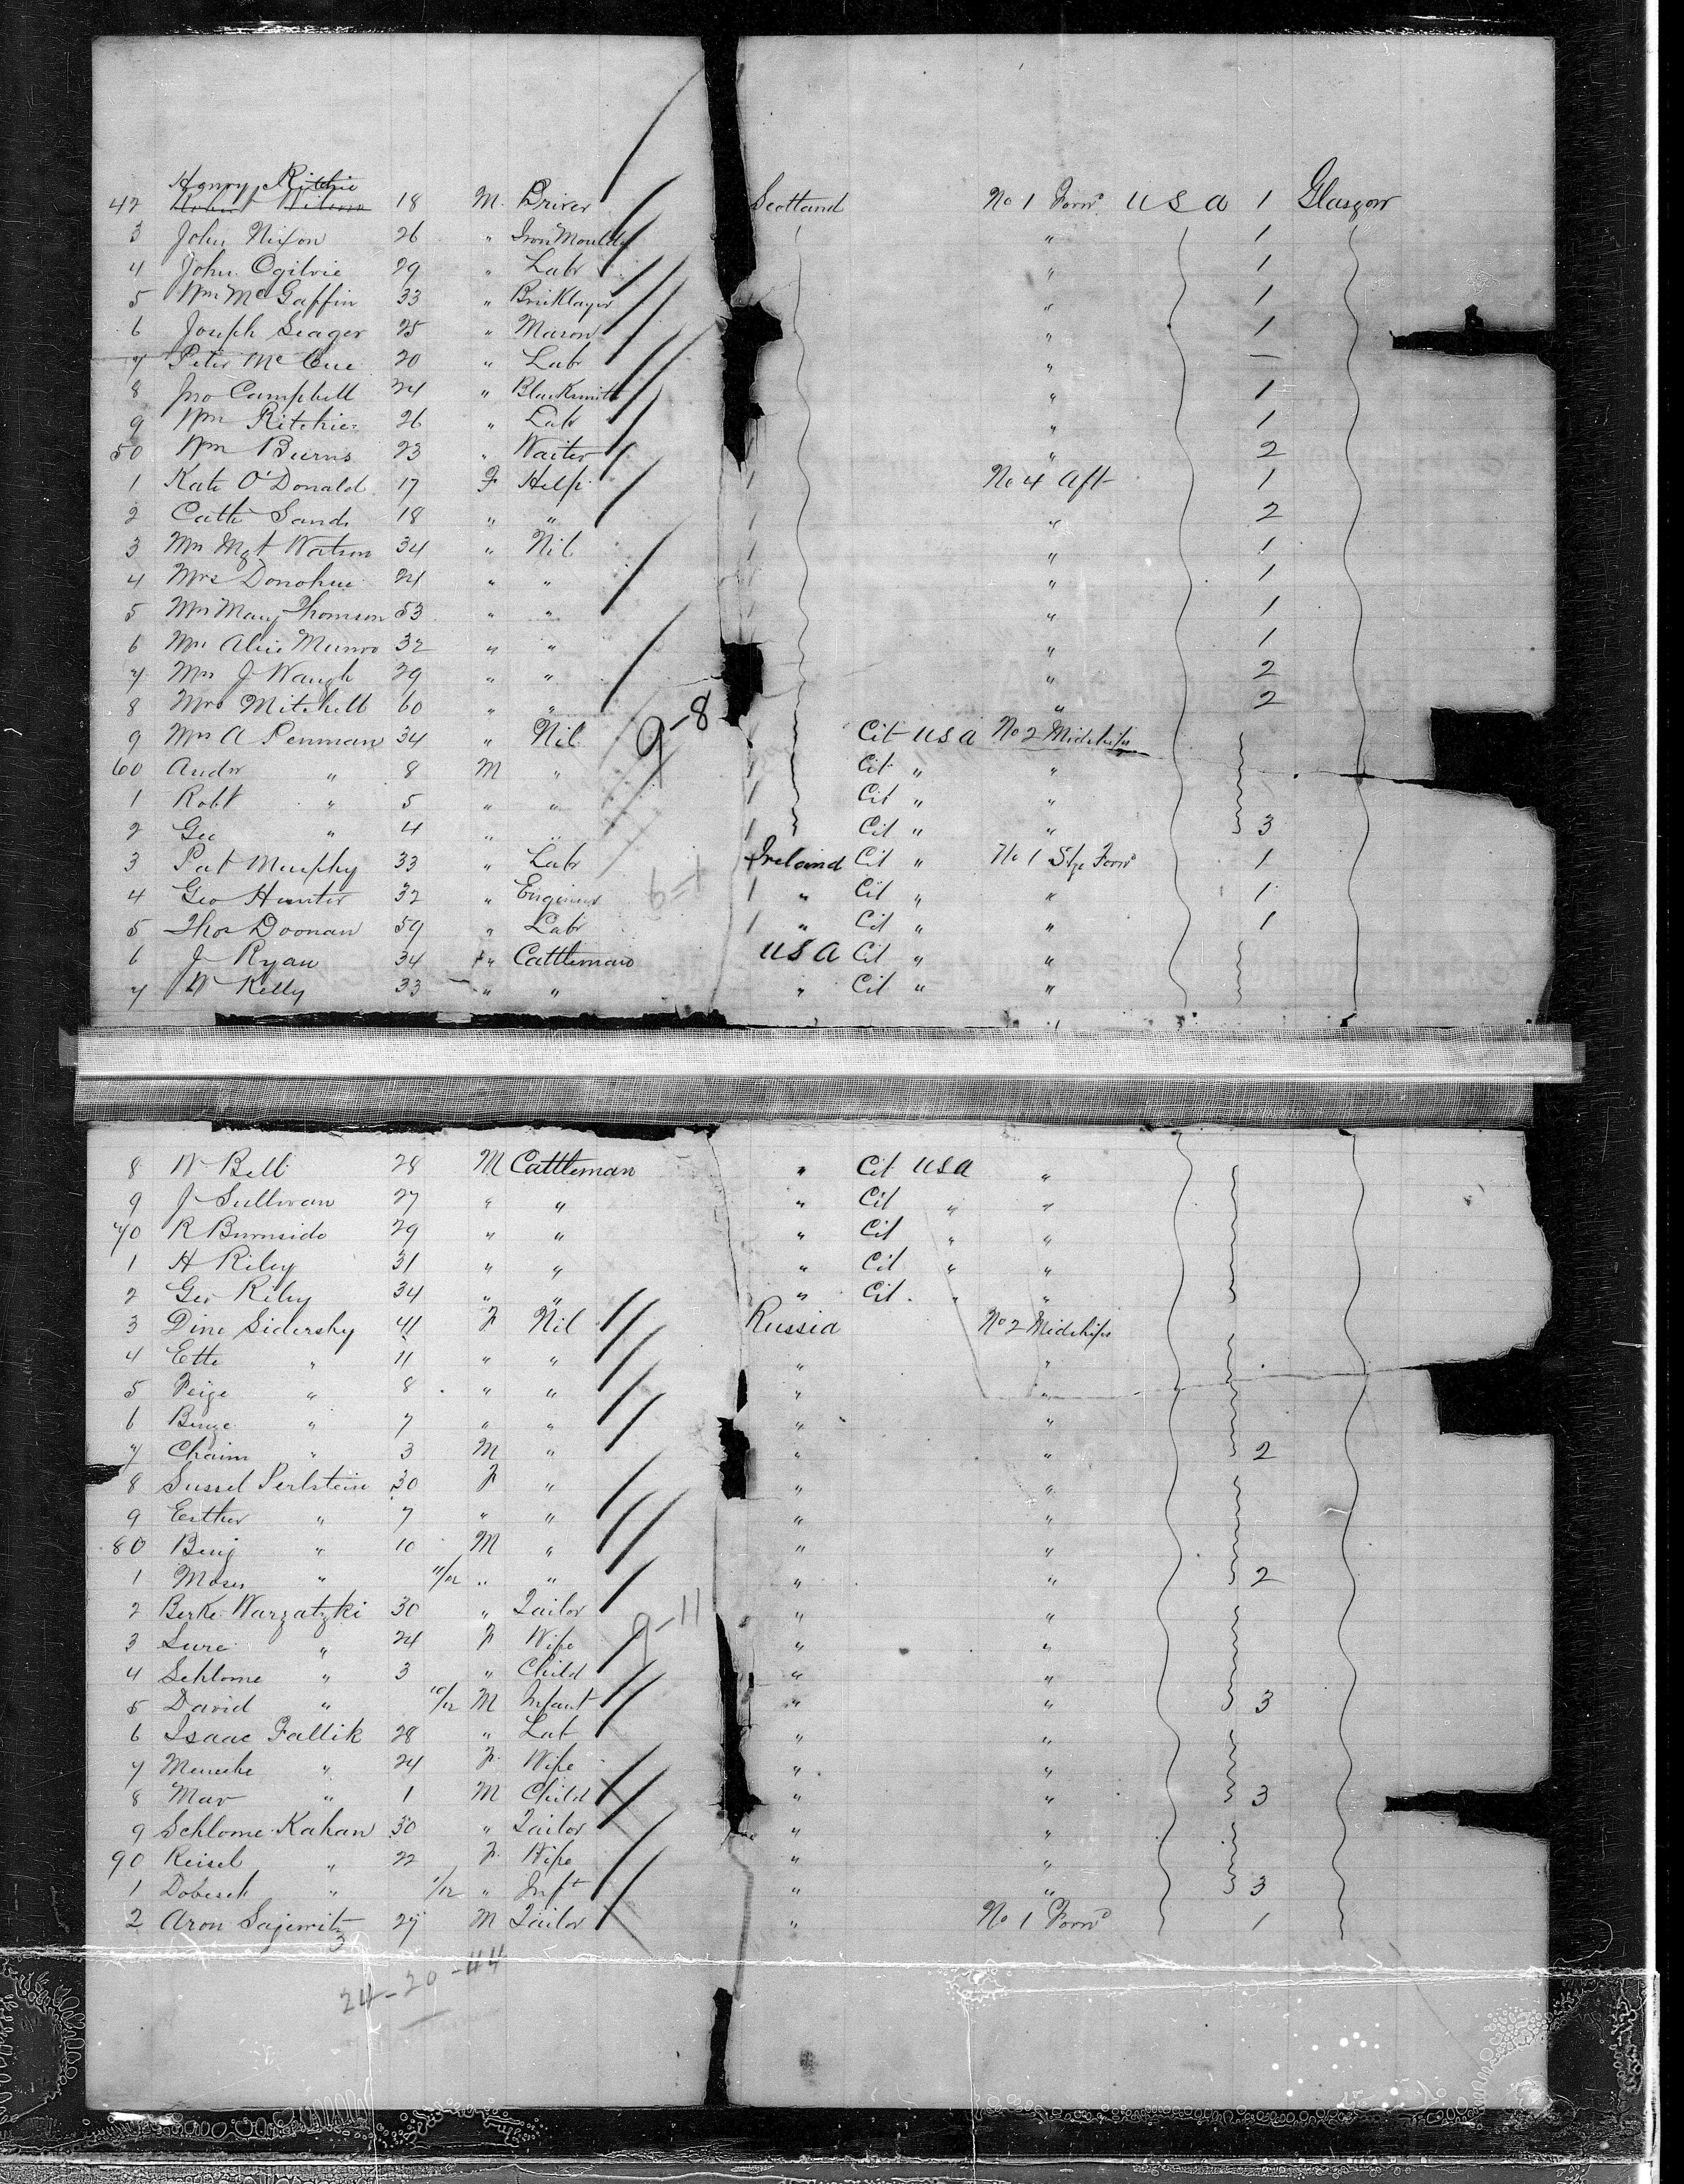 Henry Ritchie
42 18 M. Driver Scotland No 1 Forwd. U S A 1 Glasgow
3 John Nixon 26 " Iron Moulder " 1
4 John Ogilvie 29 " Labr " 1
5 Wm McGaffin 33 " Bricklayer " 1
6 Joseph Seager 25 " Mason " 1
7 Peter McCue 20 " Labr " —
8 Jno Campbell 24 " Blacksmith " 1
9 Wm Ritchie 26 " Labr " 1
50 Wm Burns 23 " Waiter " 2
1 Kate O'Donald 17 F Help 1 No 4 Aft 1
2 Cath Sands 18 " " 1 " 2
3 Mrs Mgt Watson 34 " Nil 1 " 1
4 Mrs Donohue 24 " " 1 " 1
5 Mrs Mary Thomson 53 " " 1 " 1
6 Mrs Alice Munro 32 " " " 1
7 Mrs J Waugh 29 " " " 2
8 Mrs Mitchell 60 " " " 2
9-8
9 Mrs A Penman 34 " Nil 1 Cit USA No 2 Midships
60 Andw " 8 M " 1 Cit " "
1 Robt " 5 " " 1 Cit " "
2 Geo " 4 " " 1 Cit " " 3
3 Pat Murphy 33 " Labr Ireland Cit " No 1 Stge Forwd 1
4 Geo Hunter 32 " Engineer 1 " Cit " " 1
5 Thos Doonan 59 " Labr 1 " Cit " " 1
6 J Ryan 34 " Cattleman USA Cit " "
7 W Kelly 33 " " " Cit " "
8 W Bell 28 M Cattleman " Cit USA "
9 J Sullivan 27 " " " Cit " "
70 R Burnside 29 " " " Cit " "
1 H Riley 31 " " " Cit " "
2 Geo Riley 34 " " " Cit " "
3 Dine Sidersky 41 F Nil Russia No 2 Midships
4 Ette " 11 " " " "
5 Feige " 8 " " " "
6 " 7 " " " "
7 Chaim " 3 M " " " 2
8 Sussel Perlstein 30 F " " "
9 Esther " 7 " " " "
80 Benj " 10 M " " "
1 Moses " 11/12 " " " " 2
2 Berke Warzatzki 30 " Tailor " "
9-11
3 Sure " 24 F Wife " "
4 Schlome " 3 " Child " "
5 David " 10/12 M Infant " " 3
6 Isaac Fallik 28 " Lab " "
7 " 24 F. Wife " "
8 " 1 M Child " " 3
9 Schlome Kahan 30 " Tailor " "
90 Reisel " 22 F. Wife " "
1 " 1/12 " Inft " " 3
2 Aron 27 M Tailor " No 1 Forwd 1
24-20-44